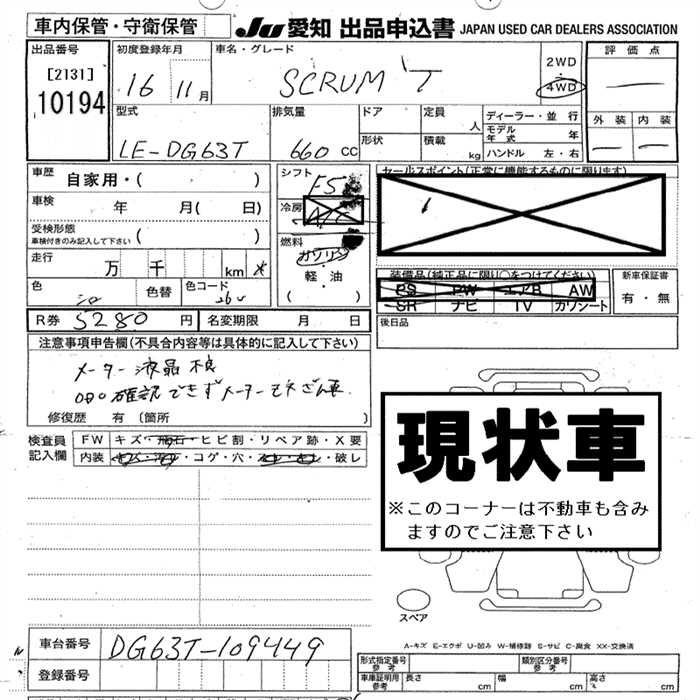 車内保管・守衛保管
JU 愛知 出品申込書 JAPAN USED CAR DEALERS ASSOCIATION
出品番号
[2131]
10194
初度登録年月
16 11月
車名・グレード
SCRUM T
2WD
4WD
評価点
外装 内装
型式
LE-DG63T
排気量
660 cc
ドア
形状
定員
人
積載
kg
ディーラー・並行
モデル年式 年
ハンドル 左・右
車歴 自家用・( )
車検 年 月( 日)
受検形態
車検付きのみ記入して下さい ( )
走行 万 千 km *
色
色替
色コード
26U
シフト
F5
冷房
A/C
燃料
ガソリン
軽・油
( )
セールスポイント(正常に機能するものに限ります)
装備品(純正品に限り〇をつけてください)
PS PW エアB AW
SR ナビ TV カワシート
新車保証書
有・無
R券 5280 円
名変期限 月 日
後日品
注意事項申告欄(不具合内容等は具体的に記入して下さい)
メーター液晶不良
ODO確認できずメーター改ざん車
修復歴 有(箇所 )
検査員記入欄
FW キズ・飛石・ヒビ割・リペア跡・X要
内装 コゲ・穴・ ・破レ
現状車
※このコーナーは不動車も含み
ますのでご注意下さい
スペア
A-キズ E-エクボ U-凹み W-補修跡 S-サビ C-腐食 XX-交換済
車台番号 DG63T-109449
登録番号
形式指定番号
参考
類別区分番号
参考
車庫証明用
参考
長さ cm 幅 cm 高さ cm